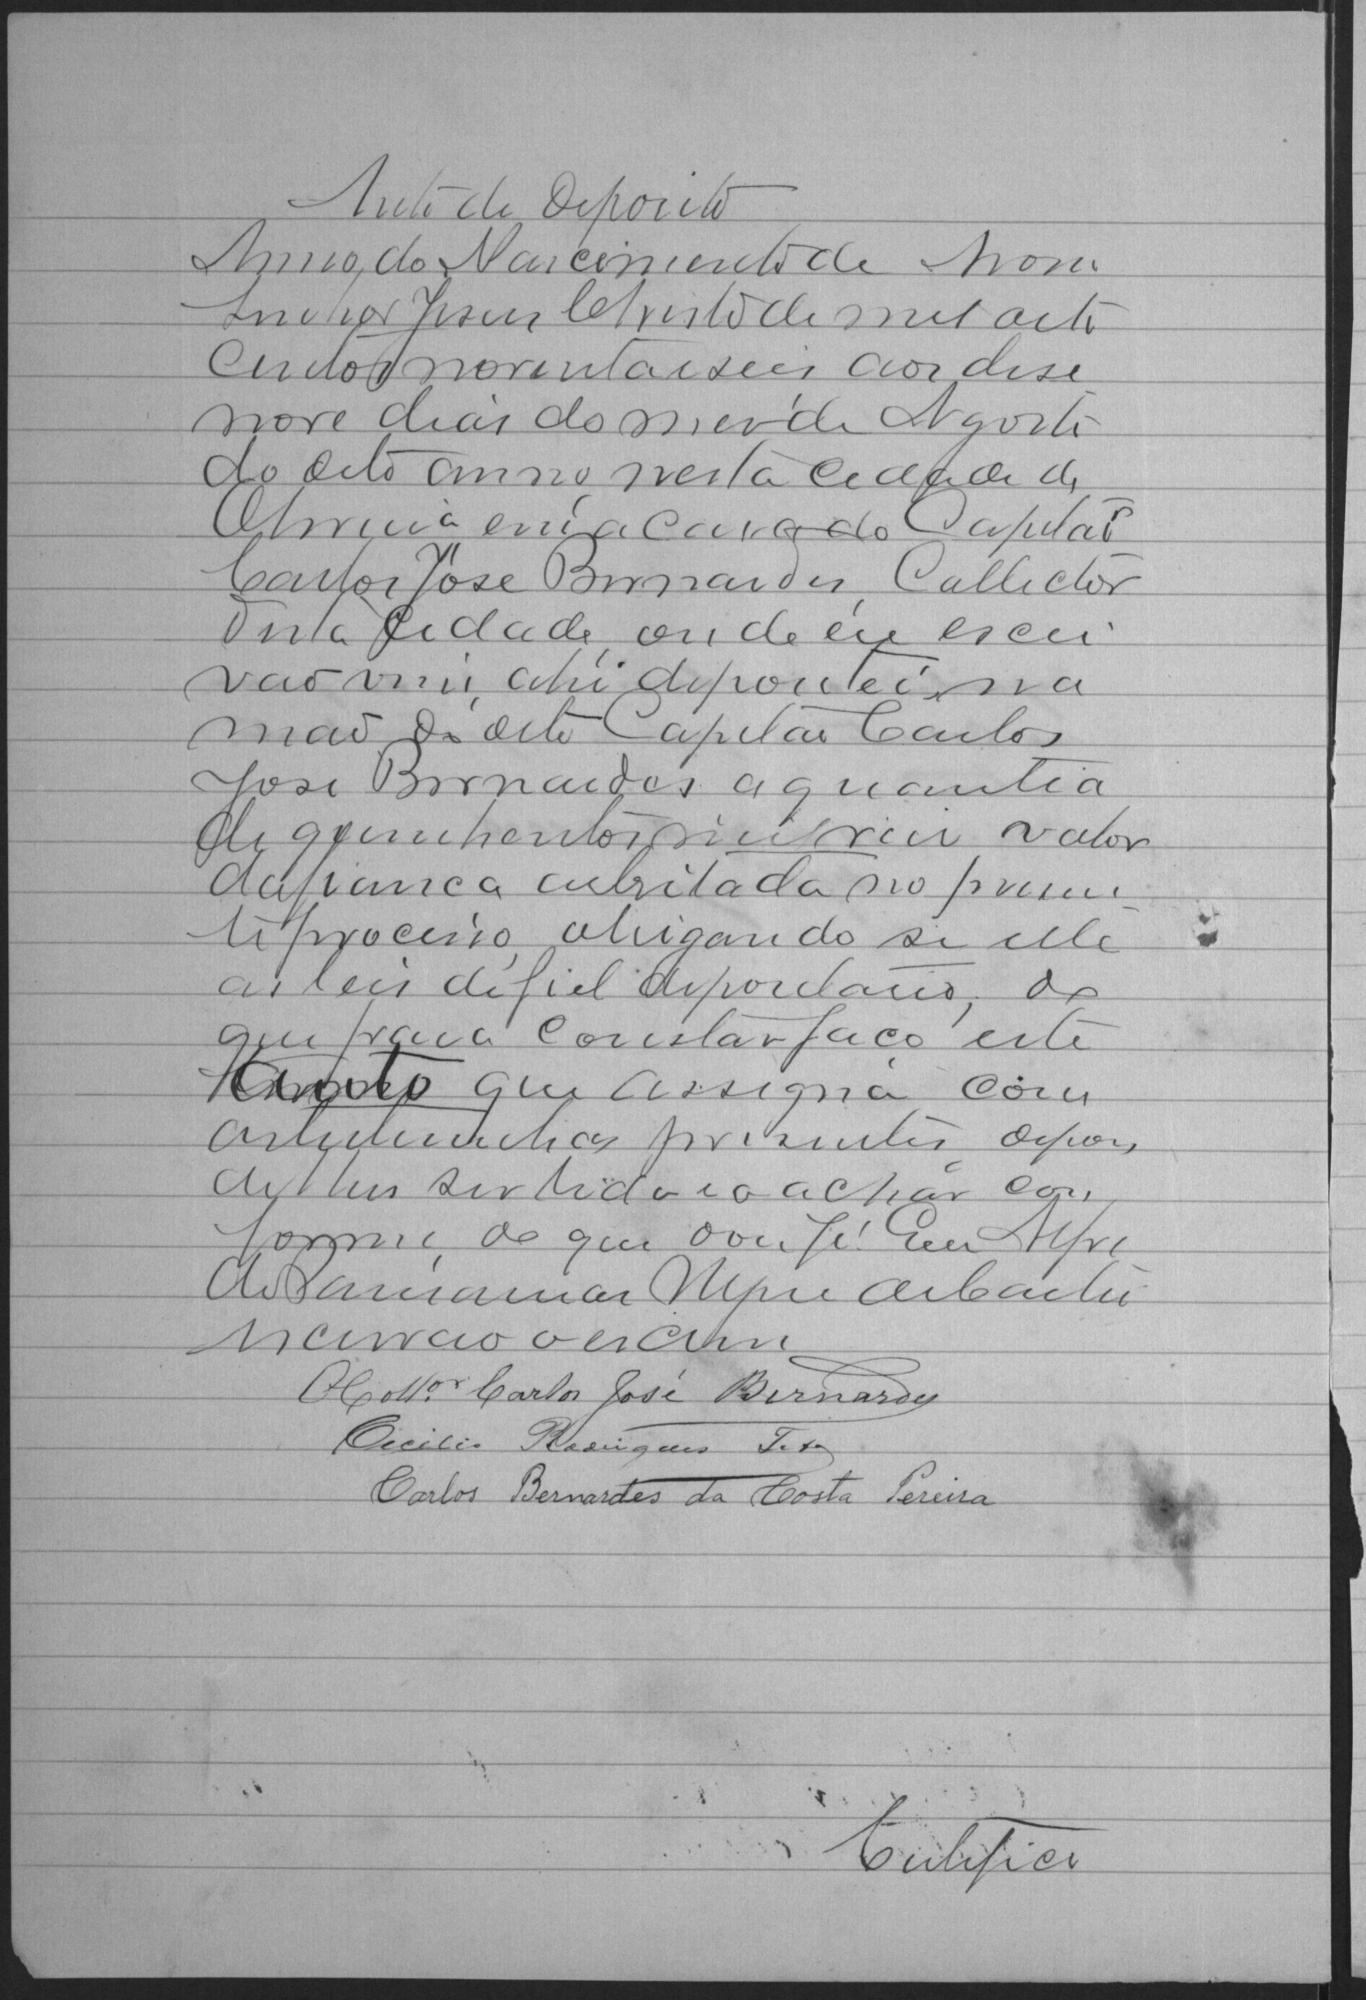 Auto de Deposito
Anno do Nascimento de Nosso
Senhor Jesus Christo de mil oito
centos noventa e seis aos dese
nove dias do mes de Agosto
do dito anno, nesta cidade de
em a casa do Capitão
Carlos José Bernardes, Collector
desta Cidade, onde eu escri
vão vim, ahi depositei na
mão do dito Capitão Carlos
José Bernardes a quantia
de quinhentos mil reis valor
da fiança arbitrada no presen
te processo, obrigando se elle
as leis de fiel depositario, do
que para constar faço este
auto que assigna com
as testemunhas presentes, depois
de lhes ser lido e o achar con
forme, do que dou fé. Eu
de Castro
escrivão o escrevi
O Coll.or Carlos José Bernardes
Cecilio Rodrigues
Carlos Bernardes da Costa Pereira
Certifico